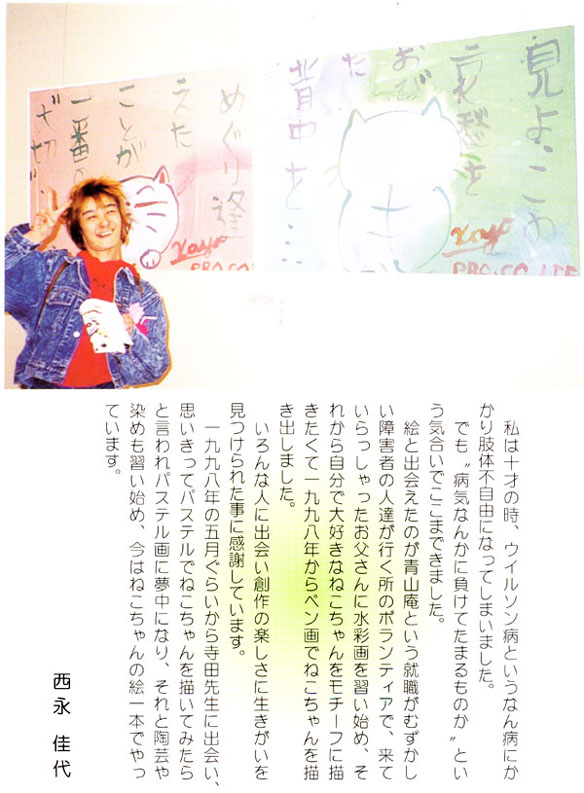 見よこの
哀愁を
おび
た
背中を…
Kayo
PRO.CO.LTD
めぐり逢
えた
ことが
一番の
大切
Kayo
私は十才の時、ウイルソン病というなん病にか
かり肢体不自由になってしまいました。
でも〝病気なんかに負けてたまるものか〟とい
う気合いでここまできました。
絵と出会えたのが青山庵という就職がむずかし
い障害者の人達が行く所のボランティアで、来て
いらっしゃったお父さんに水彩画を習い始め、そ
れから自分で大好きなねこちゃんをモチーフに描
きたくて一九九八年からペン画でねこちゃんを描
き出しました。
いろんな人に出会い創作の楽しさに生きがいを
見つけられた事に感謝しています。
一九九八年の五月ぐらいから寺田先生に出会い、
思いきってパステルでねこちゃんを描いてみたら
と言われパステル画に夢中になり、それと陶芸や
染めも習い始め、今はねこちゃんの絵一本でやっ
ています。
西永 佳代